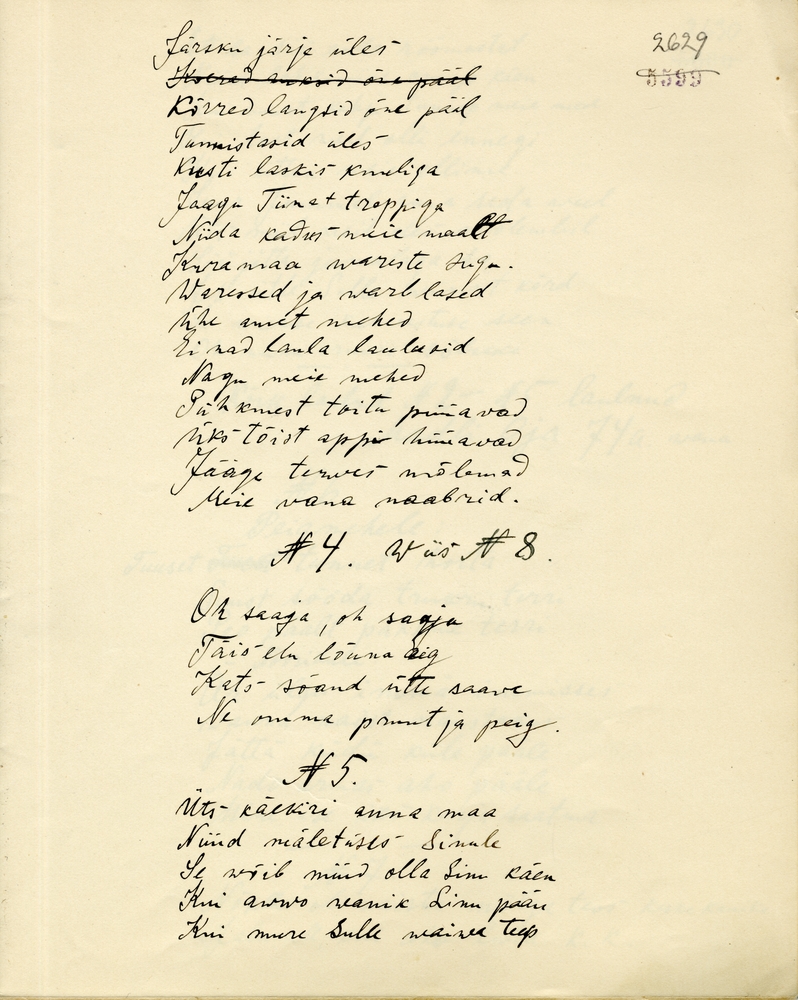 2629
5599
Järsku järje üles
Koerad auksid õue pääl
Kõrred langsid õue pääl
Tunnistasid üles
Kusti laskis kuuliga
Jaagu Tiinat treppiga
Niida kadus meie maalt
Kuramaa wareste sugu.
Waresed ja warblased
Ühe amet mehed
Ei nad laula laulusid
Nagu meie mehed
Pühkmest toitu püüavad
Üks tõist appi hüüavad
Jääge terwes mõlemad
Meie vana naabrid.
N 4. Wiis N 8.
Oh saaja, oh saaja
Täis elu lõuna aig
Kats sõand ütte saave
Ne omma pruut ja peig.
N 5.
Üts käekiri anna maa
Nüüd mäletuses Sinule
Se wõib müüd olla Sinu käen
Kui awwo wanik Sinu pään
Kui mure Sulle waiwa teep